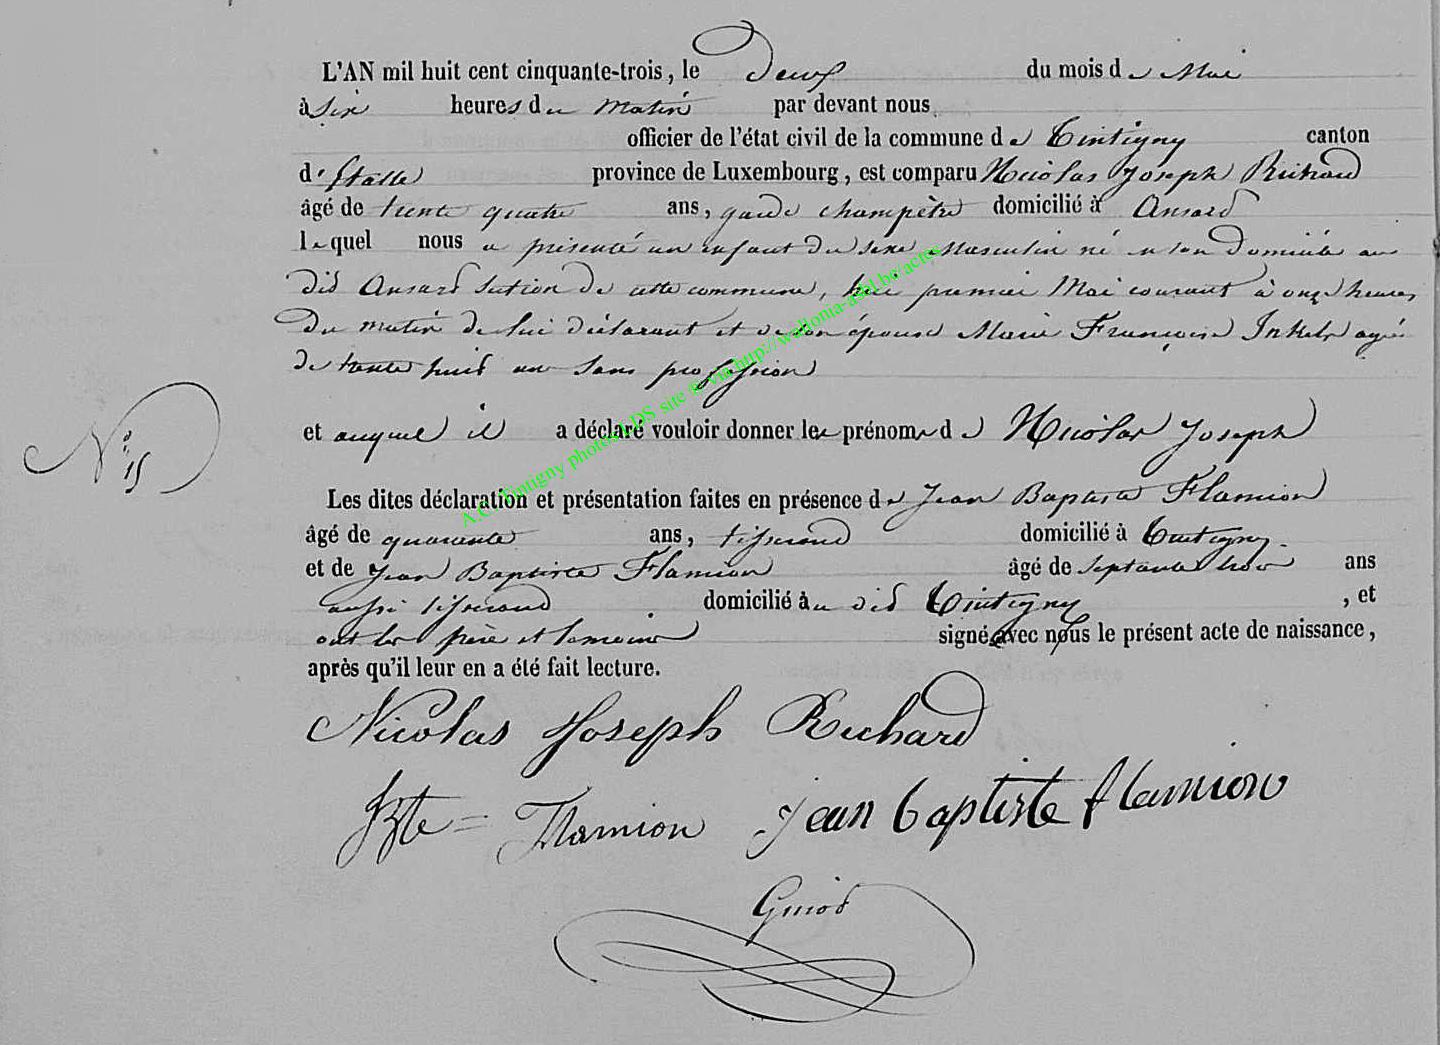 L'AN mil huit cent cinquante-trois, le Deux du mois de Mai
à six heures du matin par devant nous
officier de l'état civil de la commune de Tintigny canton
d'Etalle province de Luxembourg, est comparu Nicolas Joseph Richard
âgé de trente quatre ans, garde champêtre domicilié à Ansard
lequel nous a présenté un enfant du sexe Masculin né en son Domicile au
dit Ansard Section de cette commune, le premier Mai courant à onze heures
Du matin de lui déclarant et de son épouse Marie Françoise agée
de trente huit an sans profession
N° 15
et auquel il a déclaré vouloir donner les prénoms de Nicolas Joseph
Les dites déclaration et présentation faites en présence de Jean Baptiste Flamion
âgé de quarante ans, tisserand domicilié à Tintigny.
et de Jean Baptiste Flamion âgé de septante trois ans
aussi tisserand domicilié au dit Tintigny, et
ont les père et temoins signé avec nous le présent acte de naissance,
après qu'il leur en a été fait lecture.
Nicolas Joseph Richard
JBte = Flamion Jean baptiste flamion
A.C. Tintigny photos LDS site & via http://wallonia-asbl.be/actes